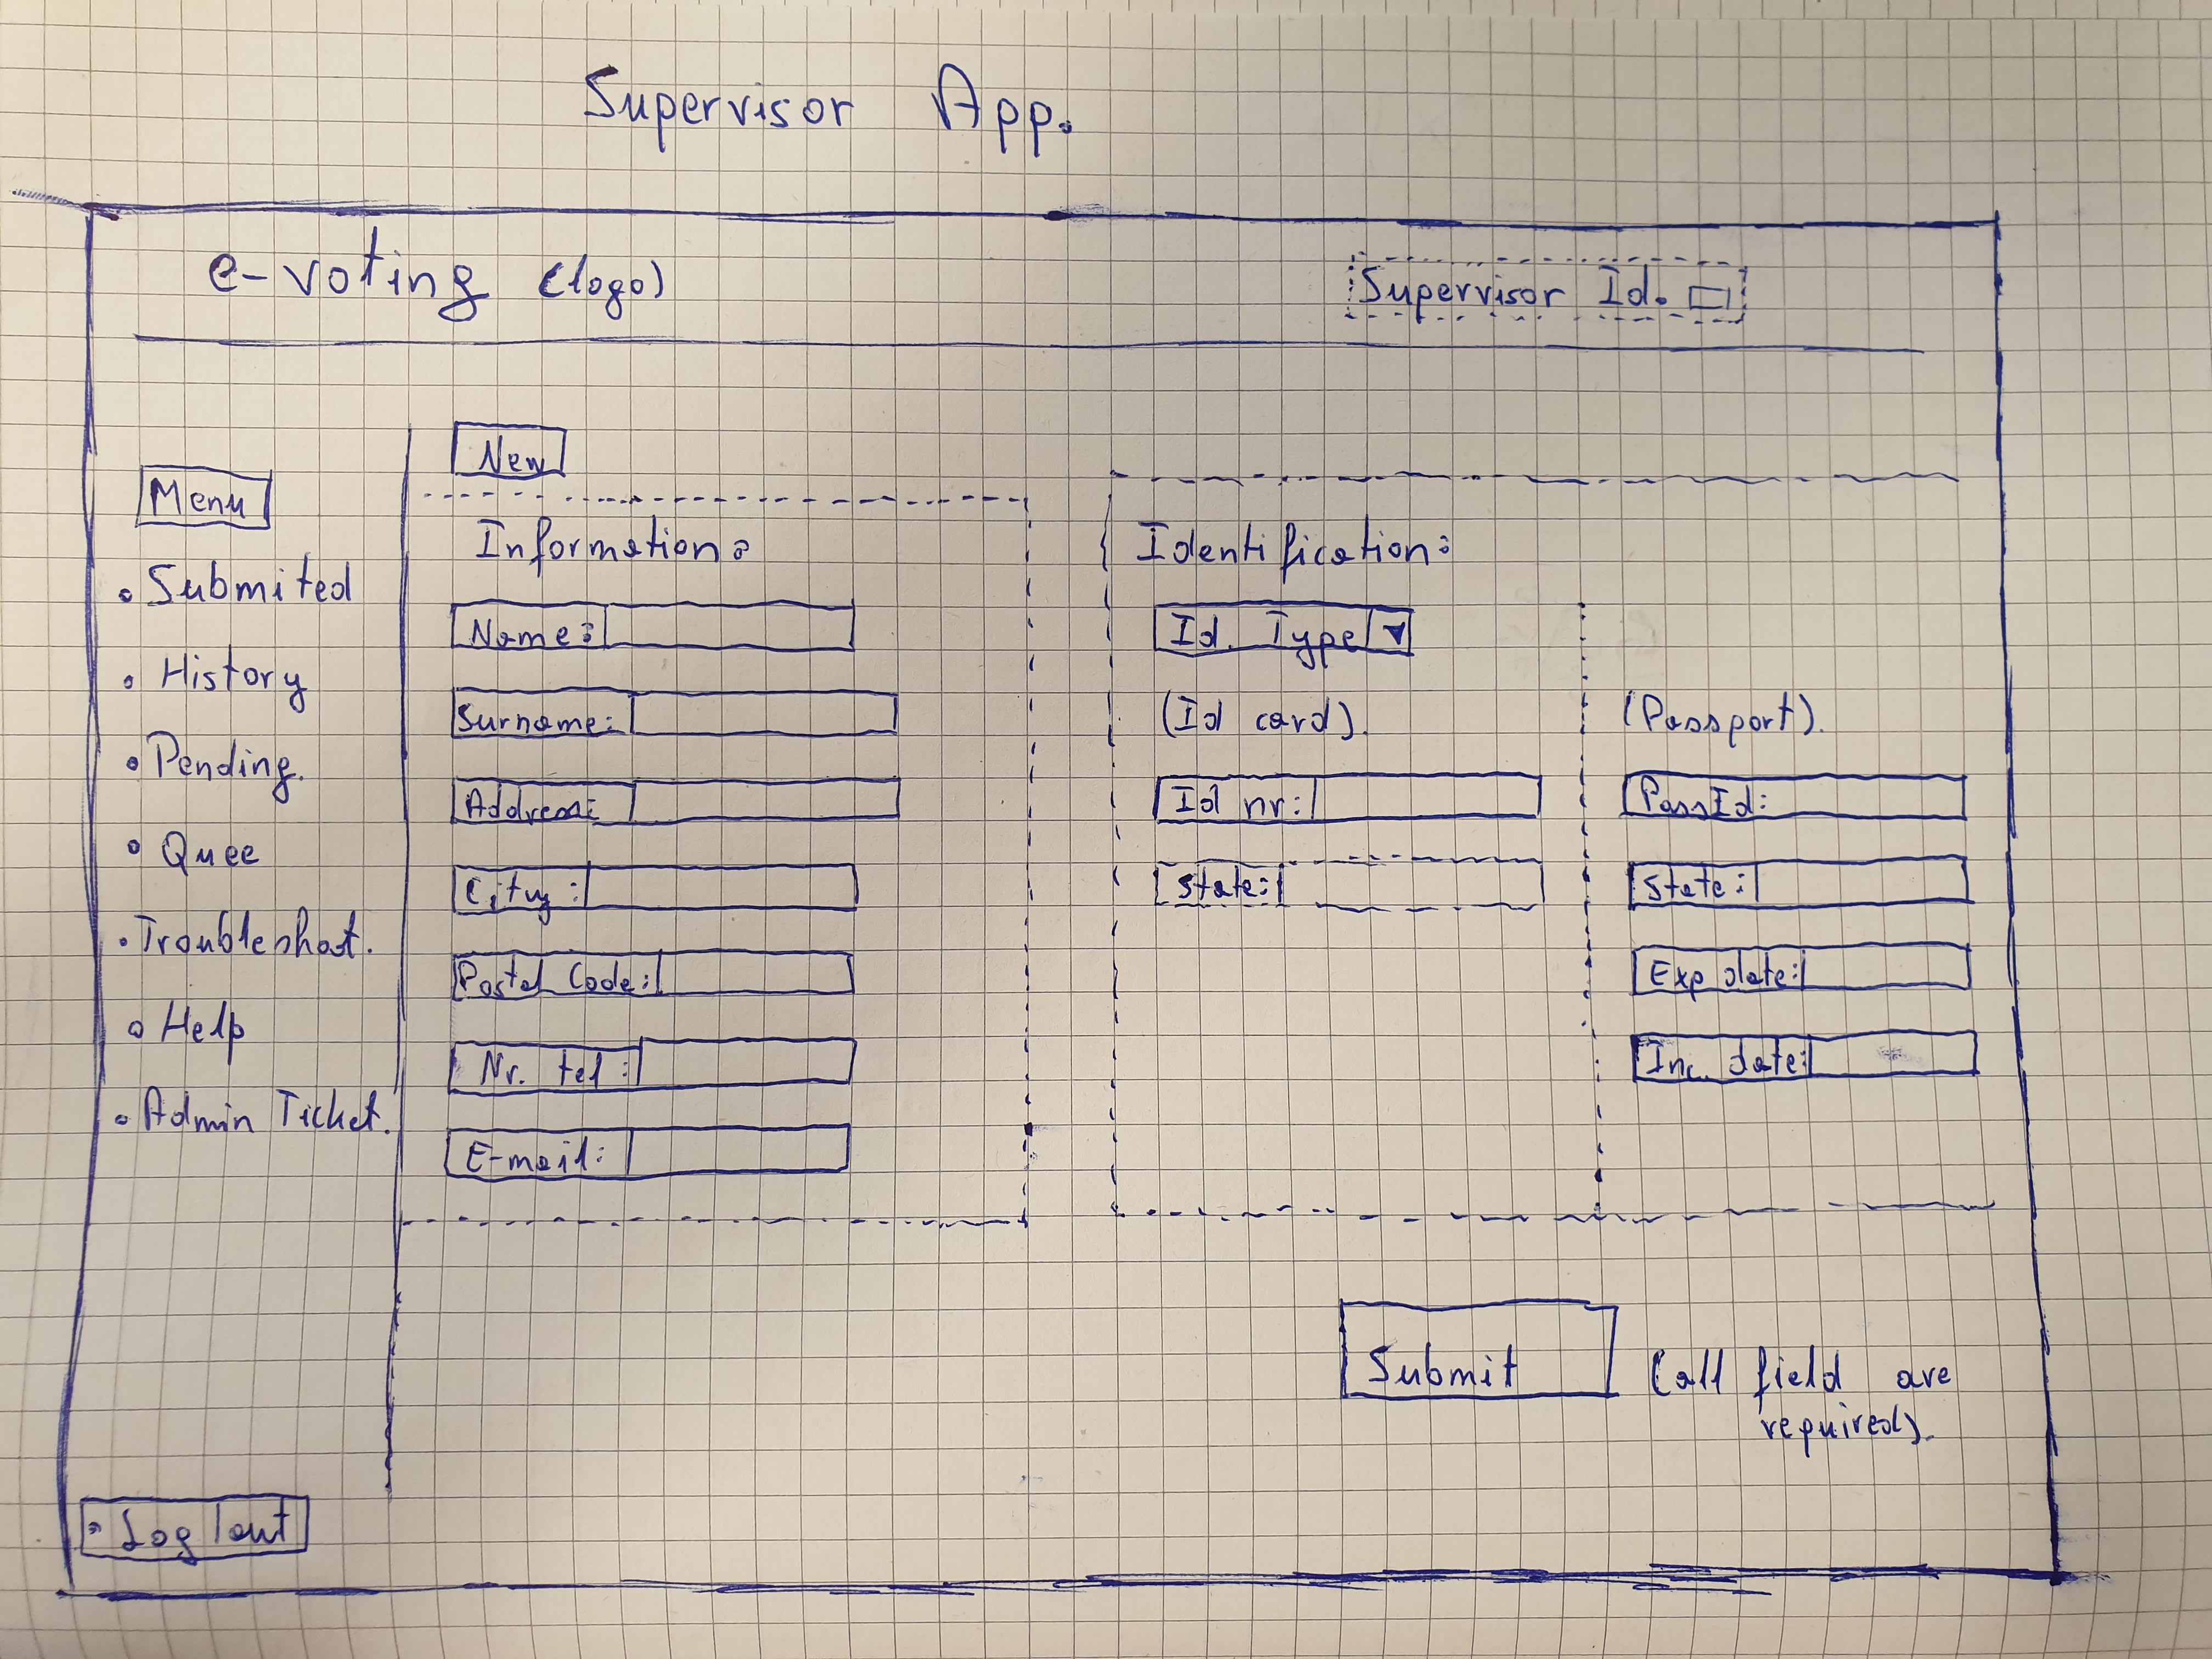 Supervisor App.
e-voting (logo)
Supervisor Id.
Menu
• Submited
• History
• Pending.
• Quee
• Troubleshot.
• Help
• Admin Ticket.
• Log out
New
Information:
Name:
Surname:
Address:
City:
Postal Code:
Nr. tel:
E-mail:
Identification:
Id. Type
(Id card).
Id nr:
State:
(Passport).
PassId:
State:
Exp date:
Inc. date:
Submit
(all field are
required).